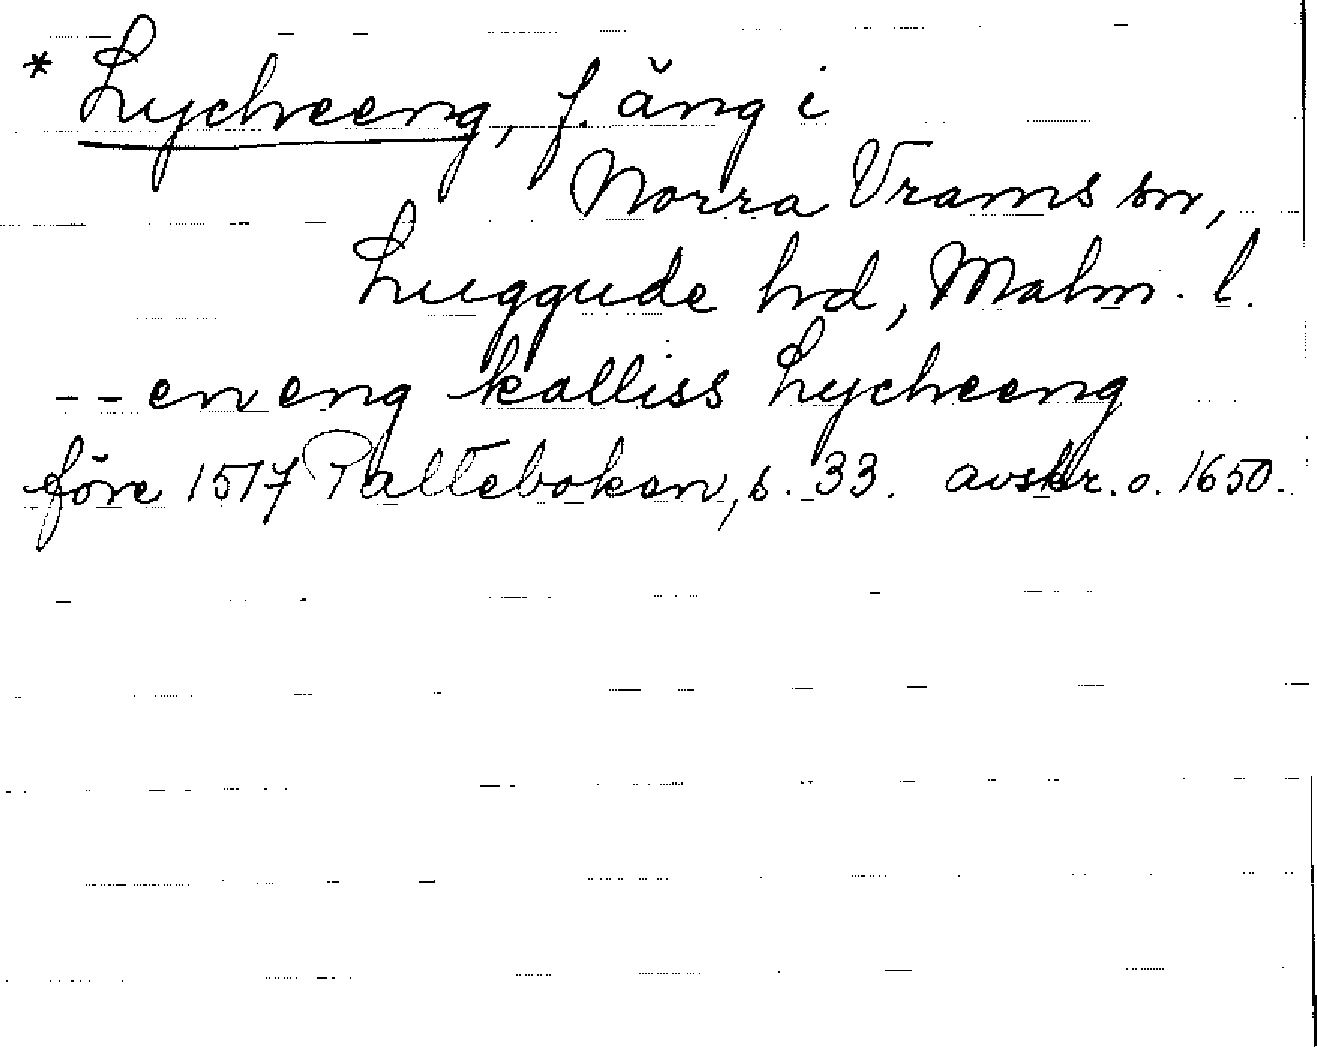 * Lycheeng, f. äng i
Norra Vrams sn,
Luggude hd, Malm. l.
-- en eng kalliss Lycheeng
före 1517 Palteboken, s. 33. avskr. o. 1650.